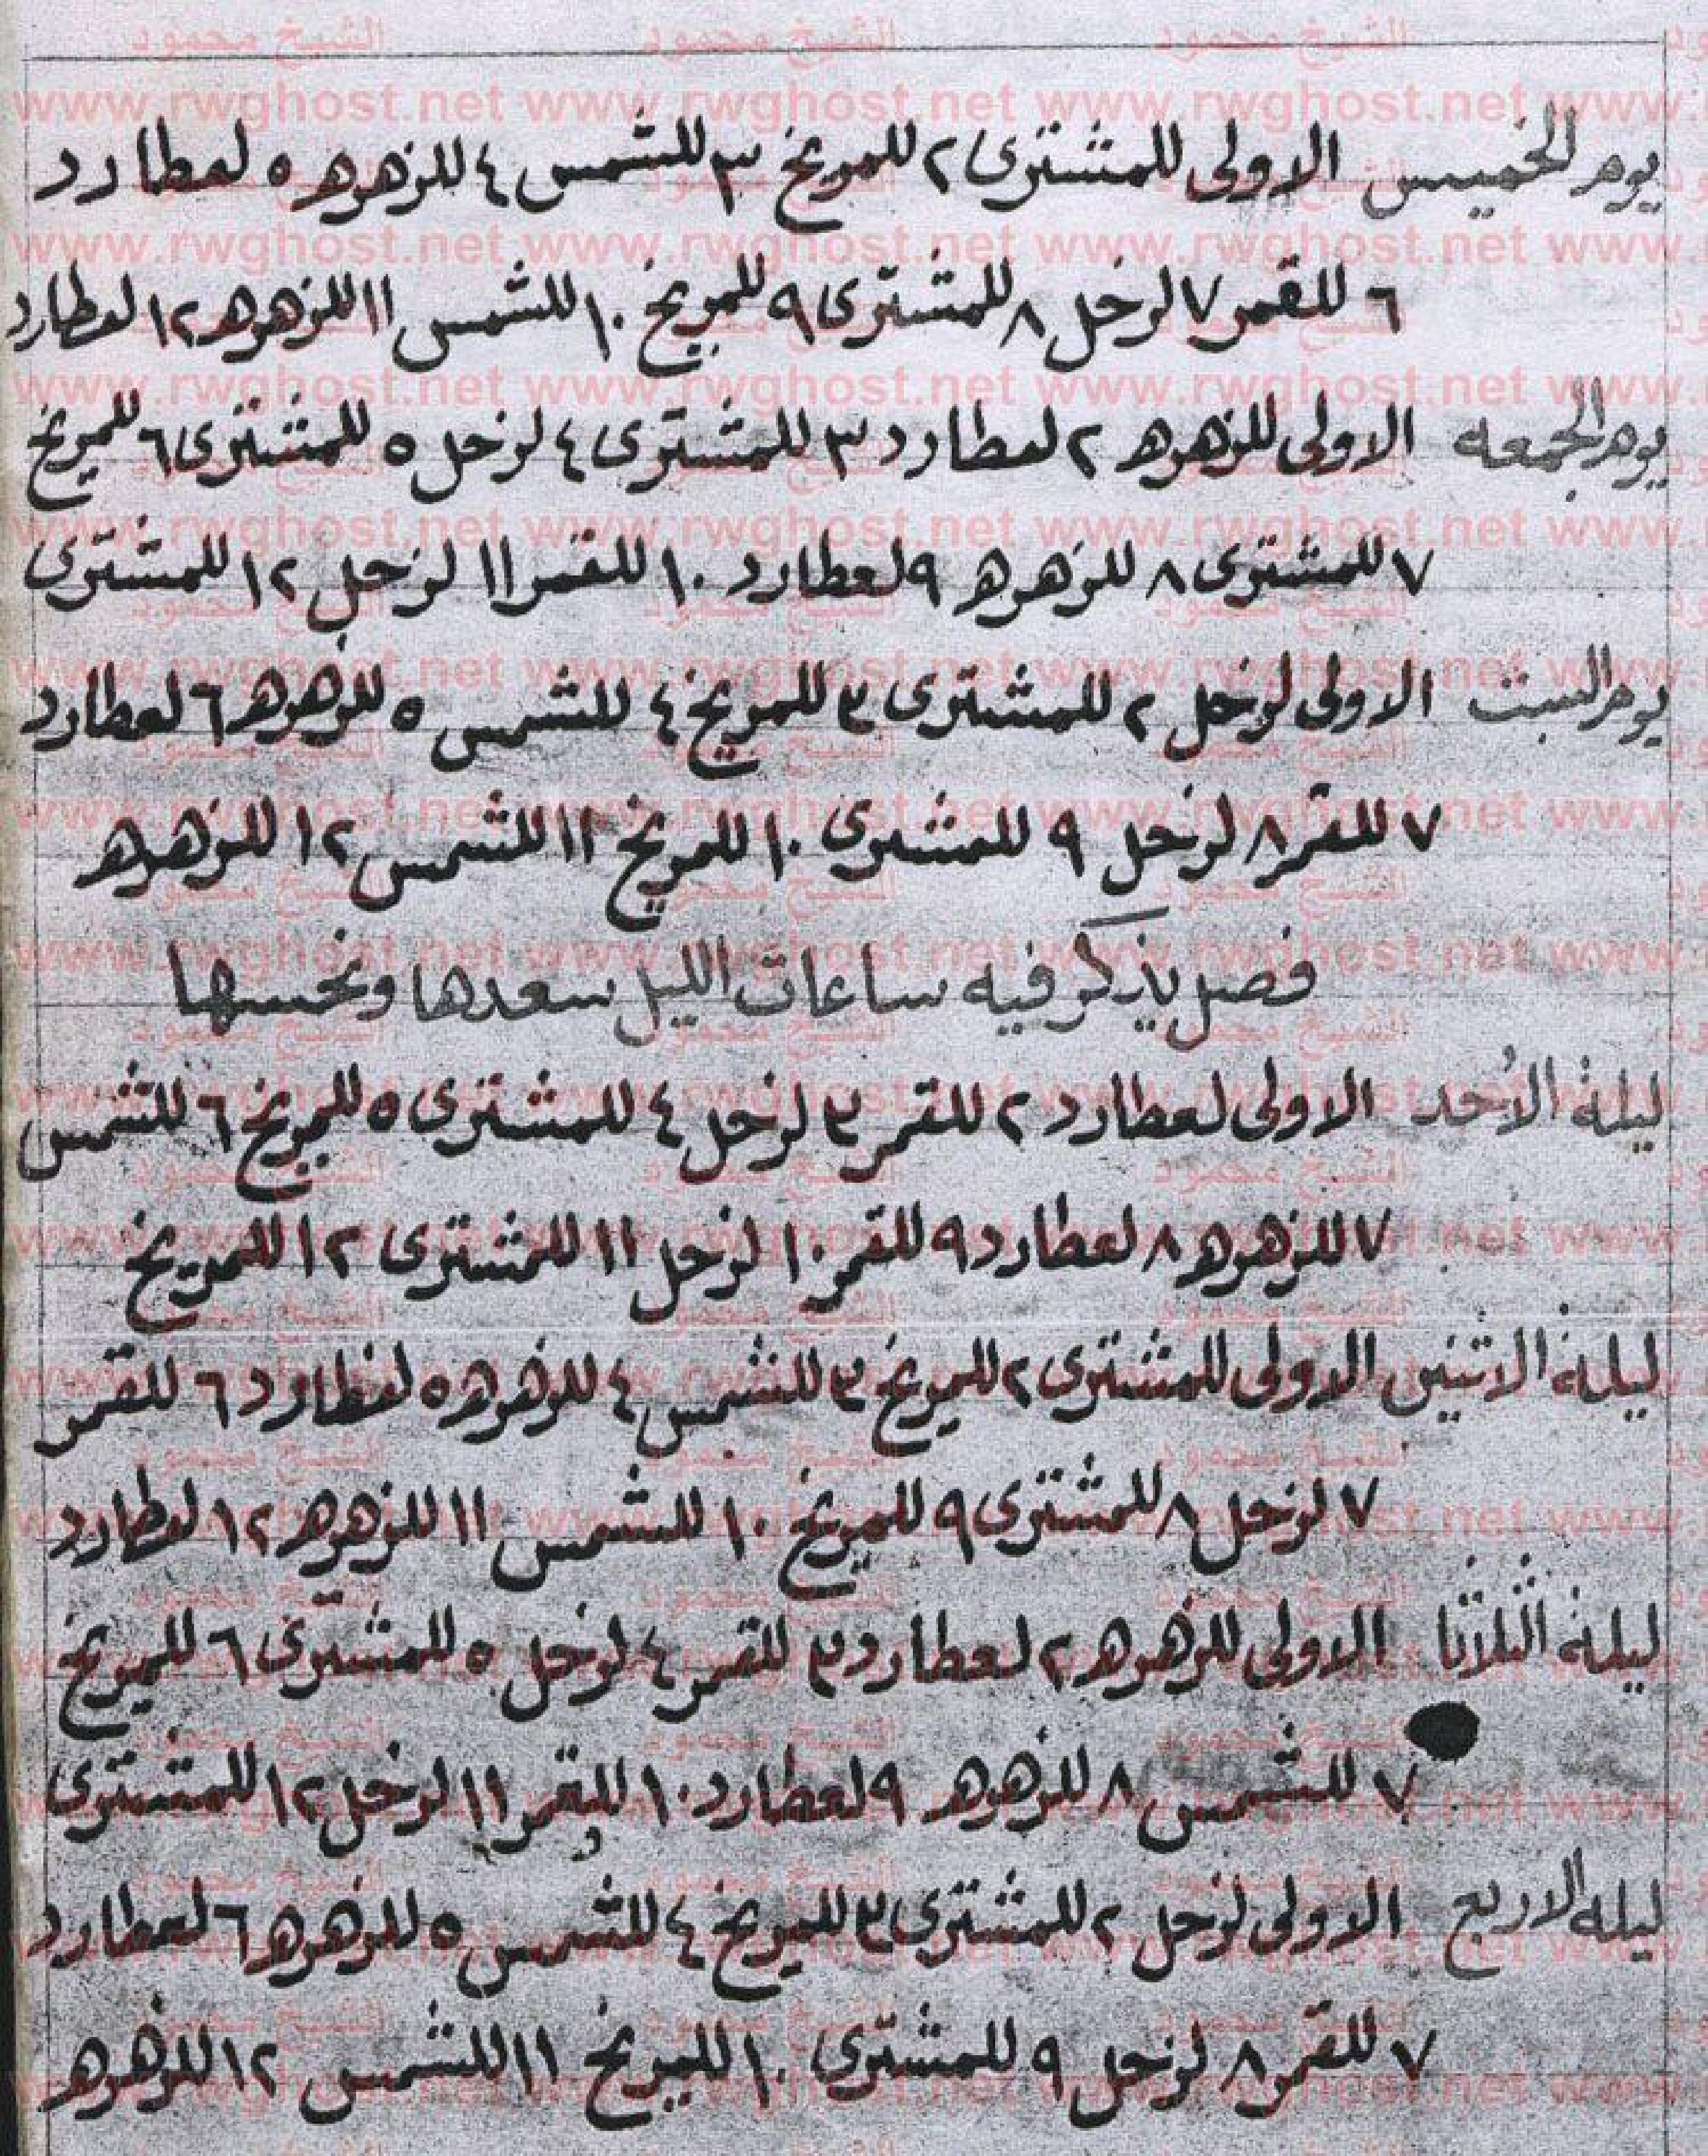 يوم الخميس الاولى للمشترى ٢ للمريخ ٣ للشمس ٤ للزهره ٥ لعطارد
٦ للقمر ٧ لزحل ٨ للمشترى ٩ للمريخ ١٠ للشمس ١١ للزهره ١٢ لعطارد
يوم الجمعه الاولى للزهره ٢ لعطارد ٣ للمشترى ٤ لزحل ٥ للمشترى ٦ للمريخ
٧ للمشترى ٨ للزهره ٩ لعطارد ١٠ للقمر ١١ لزحل ١٢ للمشترى
يوم السبت الاولى لزحل ٢ للمشترى ٣ للمريخ ٤ للشمس ٥ للزهره ٦ لعطارد
٧ للقمر ٨ لزحل ٩ للمشترى ١٠ للمريخ ١١ للشمس ١٢ للزهره
فصل يذكر فيه ساعات الليل سعدها ونحسها
ليلة الأحد الاولى لعطارد ٢ للقمر ٣ لزحل ٤ للمشترى ٥ للمريخ ٦ للشمس
٧ للزهره ٨ لعطارد ٩ للقمر ١٠ لزحل ١١ للمشترى ١٢ للمريخ
ليلة الاتنين الاولى للمشترى ٢ للمريخ ٣ للشمس ٤ للزهره ٥ لعطارد ٦ للقمر
٧ لزحل ٨ للمشترى ٩ للمريخ ١٠ للشمس ١١ للزهره ١٢ لعطارد
ليلة الثلاثا الاولى للزهره ٢ لعطارد ٣ للقمر ٤ لزحل ٥ للمشترى ٦ للمريخ
٧ للشمس ٨ للزهره ٩ لعطارد ١٠ للقمر ١١ لزحل ١٢ للمشترى
ليلة الاربع الاولى لزحل ٢ للمشترى ٣ للمريخ ٤ للشمس ٥ للزهره ٦ لعطارد
٧ للقمر ٨ لزحل ٩ للمشترى ١٠ للمريخ ١١ للشمس ١٢ للزهره
الشيخ محمود
www.rwghost.net